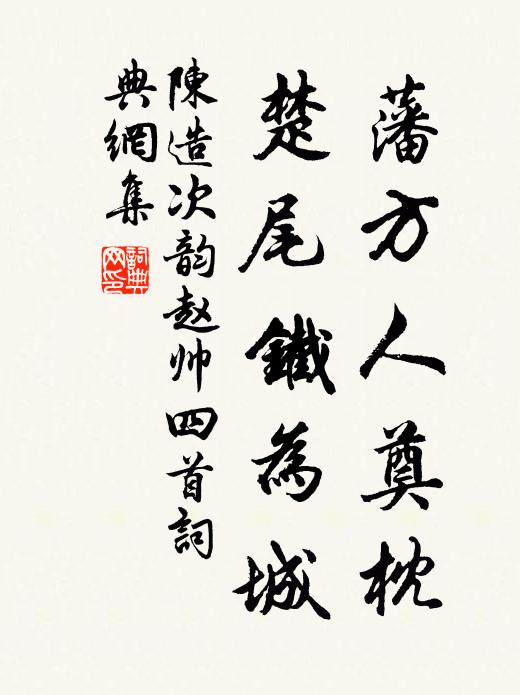 藩方人奠枕
楚尾鐵為城
陳造次韵赵帅四首詞
典網集
詞典
网印